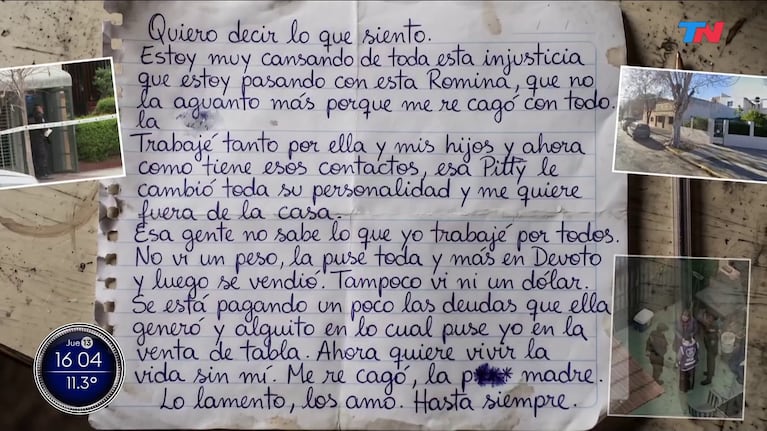 TN
Quiero decir lo que siento.
Estoy muy cansando de toda esta injusticia
que estoy pasando con esta Romina, que no
la aguanto más porque me re cagó con todo.
la
Trabajé tanto por ella y mis hijos y ahora
como tiene esos contactos, esa Pitty le
cambió toda su personalidad y me quiere
fuera de la casa.
Esa gente no sabe lo que yo trabajé por todos.
No vi un peso, la puse toda y más en Devoto
y luego se vendió. Tampoco vi ni un dólar.
Se está pagando un poco las deudas que ella
generó y alguito en lo cual puse yo en la
venta de tabla. Ahora quiere vivir la
vida sin mí. Me re cagó, la p madre.
Lo lamento, los amo. Hasta siempre.
Jue 13
16 04
11.3°